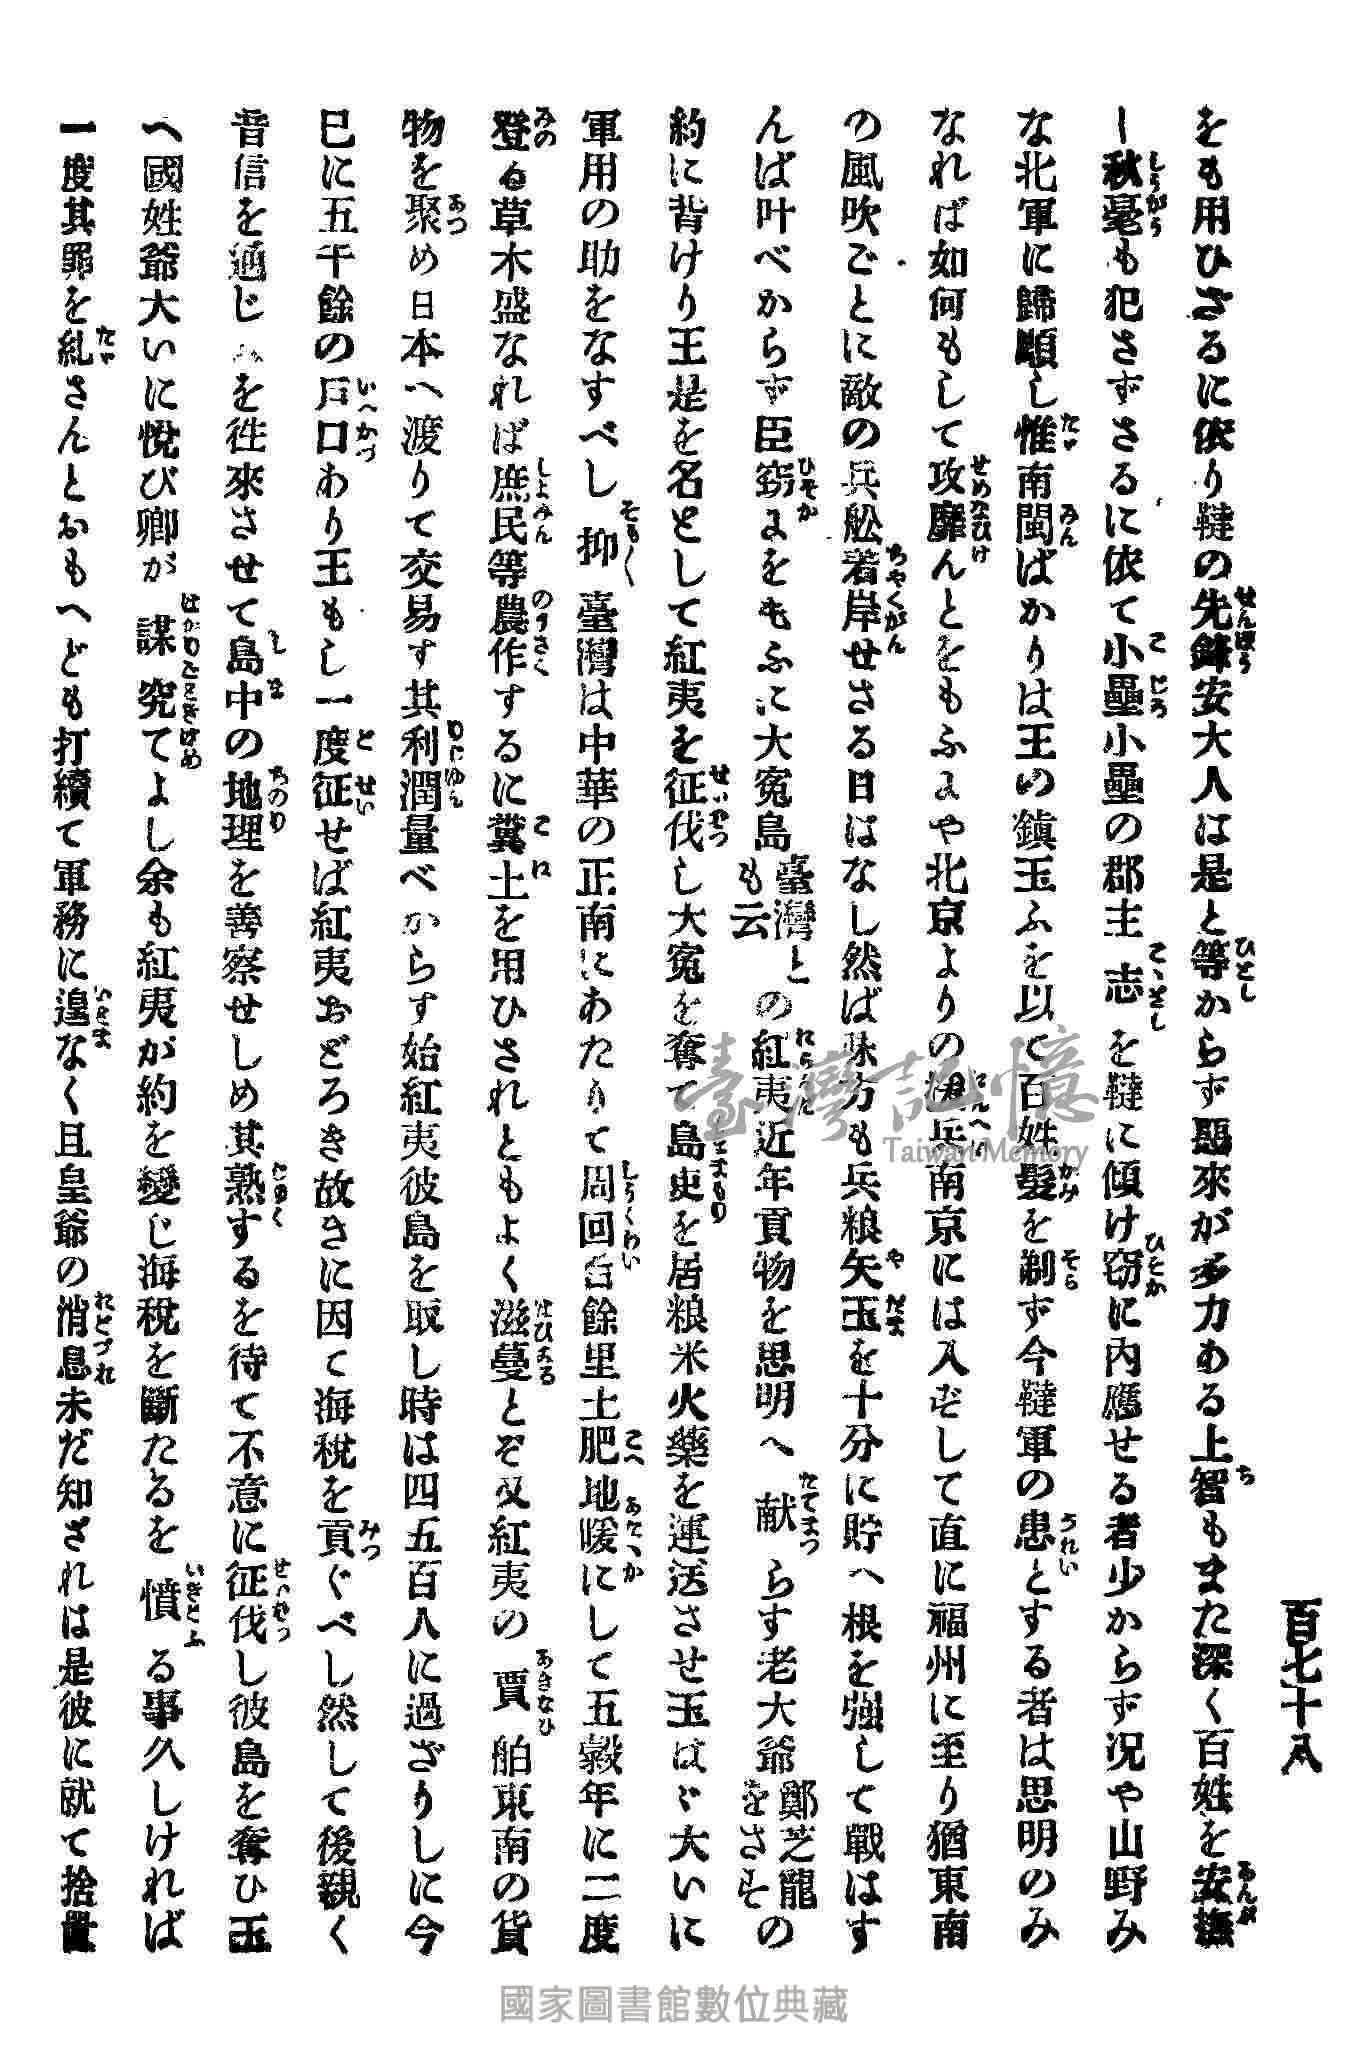 百七十八
をも用ひざるに依り韃の先鋒安大人は是と等からず惡來が多力ある上智もまた深く百姓を安撫
し秋毫も犯さずさるに依て小壘小壘の郡主志を韃に傾け窃に内應せる者少からず况や山野み
な北軍に歸順し惟南閩ばかりは王の鎮玉ふを以て百姓髮を剃ず今韃軍の患とする者は思明のみ
なれば如何もして攻靡んとをもふまや北京よりの援兵南京には入ずして直に福州に至り猶東南
の風吹ごとに敵の兵舩着岸せざる日はなし然ば味方も兵粮矢玉を十分に貯へ根を強して戰はす
んば叶べからず臣窃まをもふに大寃島臺灣とも云の紅夷近年貢物を思明へ献らす老大爺鄭芝龍をさすの
約に背けり王是を名として紅夷を征伐し大寃を奪て島吏を居粮米火藥を運送させ玉はゞ大いに
軍用の助をなすべし抑臺灣は中華の正南にあたりて周回百餘里土肥地暖にして五穀年に二度
登る草木盛なれば庶民等農作するに糞土を用ひされともよく滋蔓とぞ又紅夷の賈舶東南の貨
物を聚め日本へ渡りて交易す其利潤量べからす始紅夷彼島を取し時は四五百人に過ざりしに今
已に五千餘の戸口あり王もし一度征せば紅夷おどろき故きに因て海稅を貢ぐべし然して後親く
音信を通じ を徃來させて島中の地理を善察せしめ其熟するを待て不意に征伐し彼島を奪ひ玉
へ國姓爺大いに悅び卿が謀究てよし余も紅夷が約を變じ海稅を斷たるを憤る事久しければ
一度其罪を糺さんとおもへども打續て軍務に遑なく且皇爺の消息未だ知ざれは是彼に就て捨置
臺灣記憶
Taiwan Memory
國家圖書館數位典藏